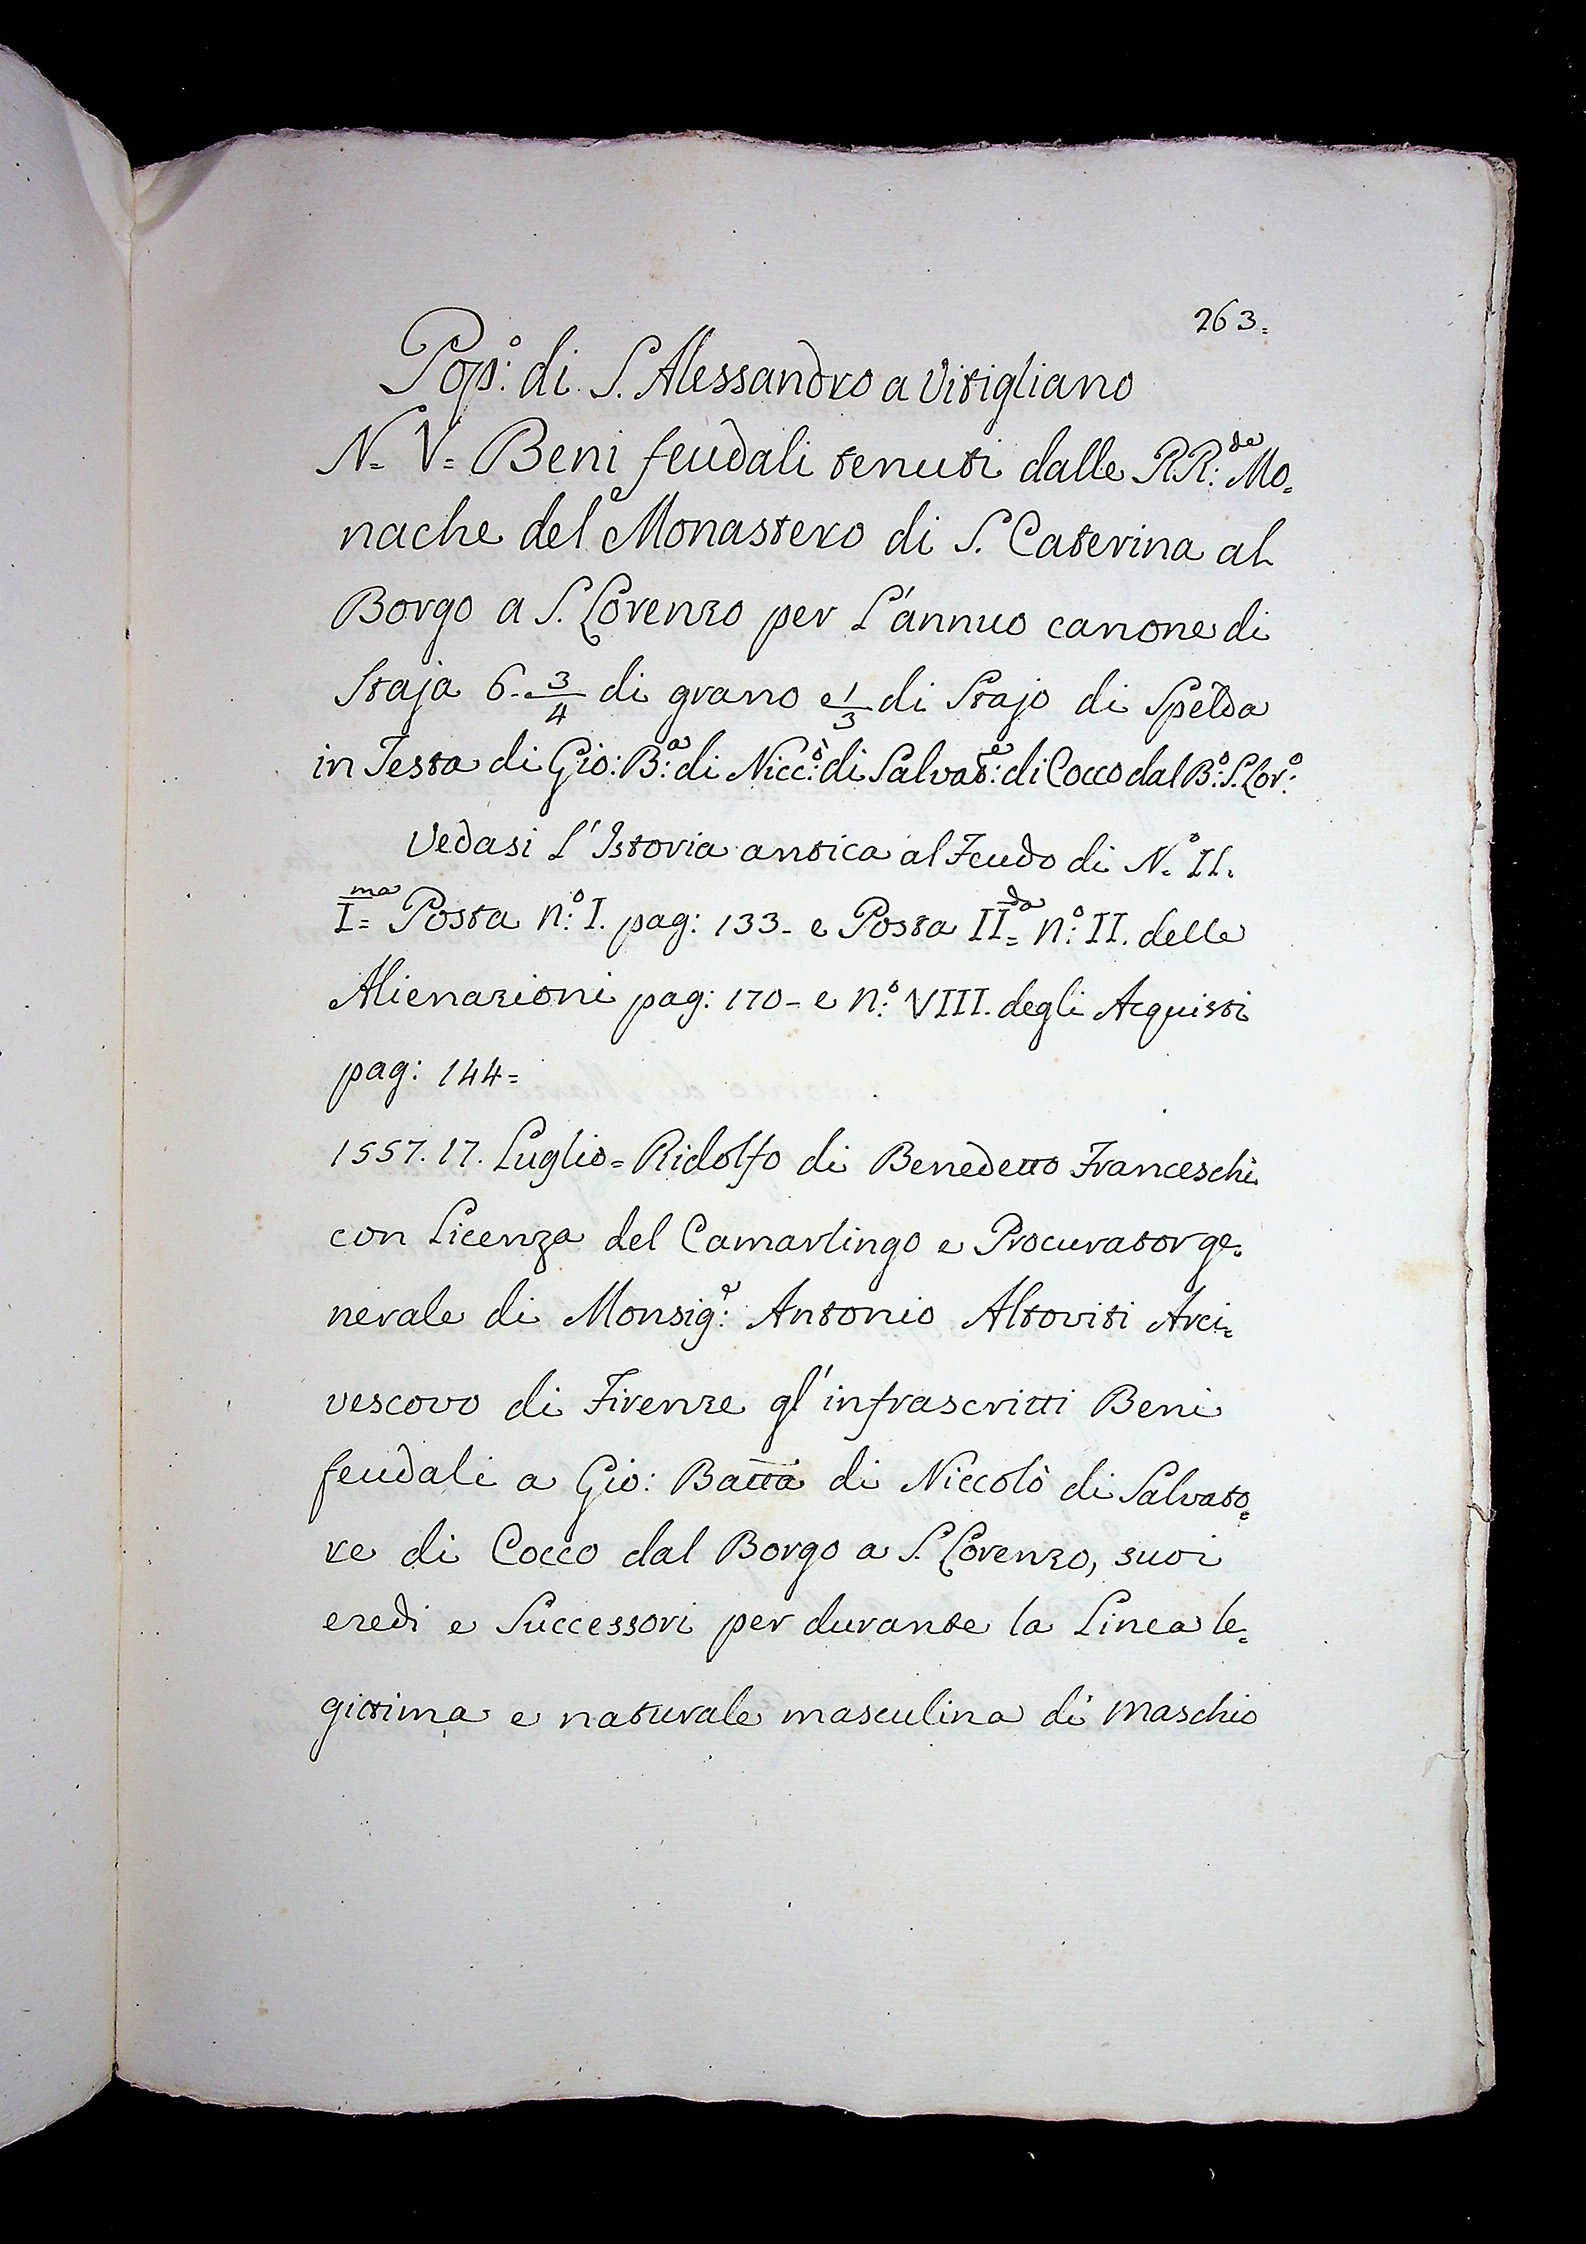 263.
Pop:º di S. Alessandro a Vitigliano
N. V= Beni feudali tenuti dalle RR:de Mo=
nache del Monastero di S. Caterina al
Borgo a S. Lorenzo per L'annuo canone di
Staja 6. 3/4 di grano e 1/3 di Stajo di Spelda
in Testa di Gio: B:a di Nicc:ò di Salvat:e di Cocco dal B:º S. Lor:º
Vedasi L'Istoria antica al Feudo di N.º II.
I=ma Posta n:º I. pag: 133- e Posta II=da n:º II. delle
Alienazioni pag: 170- e n:º VIII. degli Acquisti
pag: 144=
1557. 17. Luglio= Ridolfo di Benedetto Franceschi
con Licenza del Camarlingo e Procurator ge=
nerale di Monsig:e Antonio Altoviti Arci=
vescovo di Firenze gl'infrascritti Beni
feudali a Gio: Batta di Niccolò di Salvato=
re di Cocco dal Borgo a S. Lorenzo, suoi
eredi e Successori per durante la Linea le=
gittima e naturale masculina di maschio